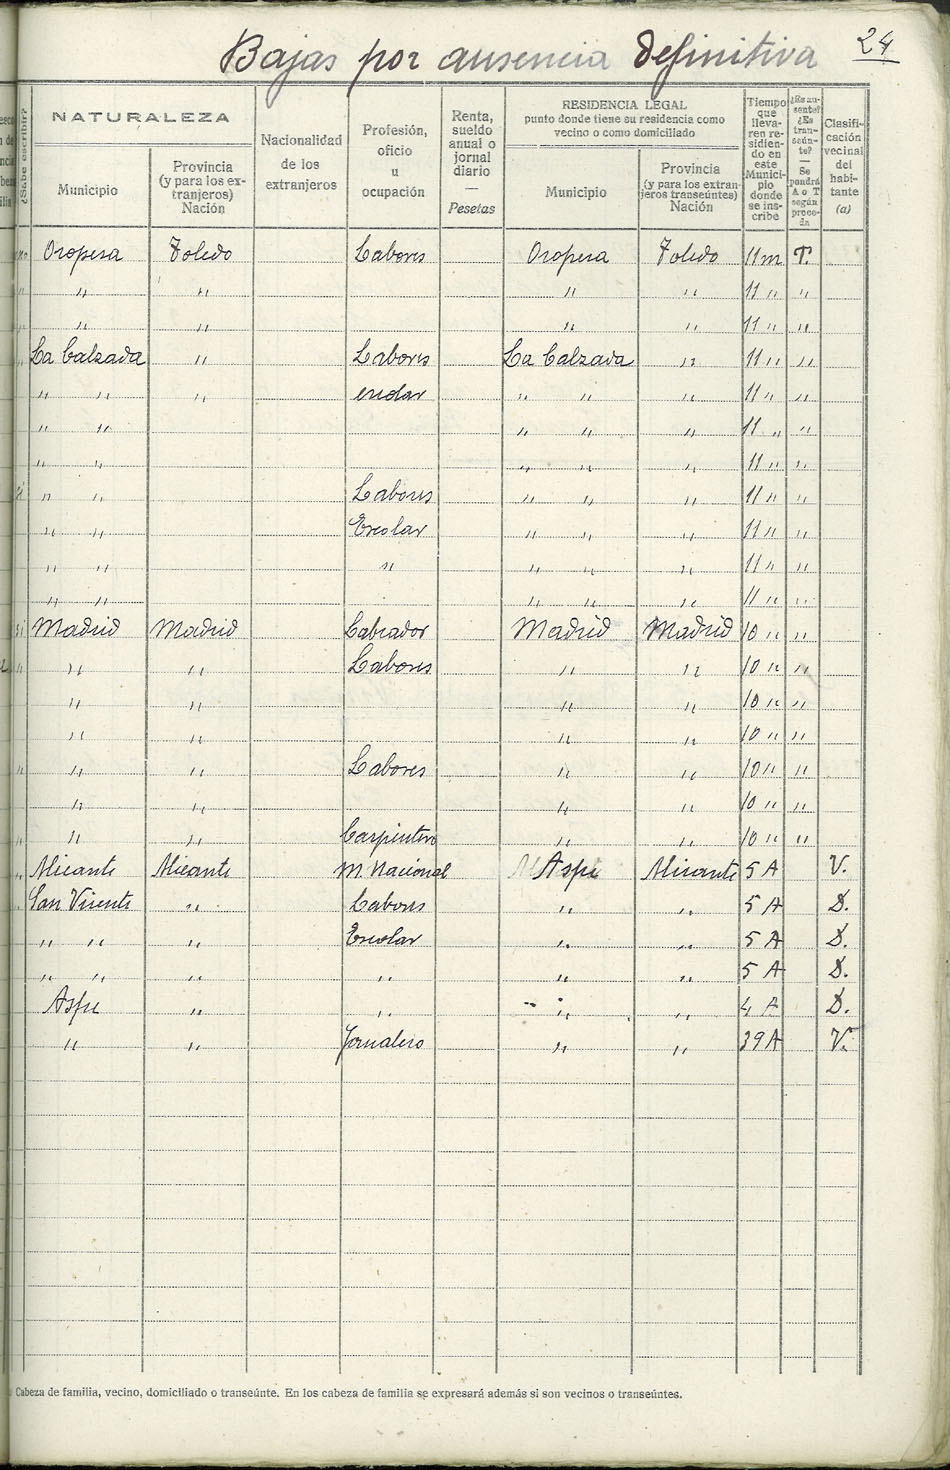 Bajas por ausencia definitiva
24
¿Sabe escribir?
NATURALEZA
Municipio
Provincia
(y para los ex-
tranjeros)
Nación
Nacionalidad
de los
extranjeros
Profesión,
oficio
u
ocupación
Renta,
sueldo
anual o
jornal
diario
—
Pesetas
RESIDENCIA LEGAL
punto donde tiene su residencia como
vecino o como domiciliado
Municipio
Provincia
(y para los extran-
jeros transeúntes)
Nación
Tiempo
que
lleva-
ren re-
sidien-
do en
este
Munici-
pio
donde
se ins-
cribe
¿Es au-
sente?
¿Es
tran-
seún-
te?
—
Se
pondrá
A o T
según
proce-
da
Clasifi-
cación
vecinal
del
habi-
tante
(a)
Oropesa Toledo Labores Oropesa Toledo 11 m T.
" " " " 11 " "
" " " " 11 " "
La Calzada " Labores La Calzada " 11 " "
" " " escolar " " " 11 " "
" " " " " 11 " "
" " " " " 11 " "
" " Labores " " " 11 " "
" " Escolar " " " 11 " "
" " " " " " 11 " "
" " " " " 11 "
Madrid Madrid Labrador Madrid Madrid 10 " "
" " Labores " " 10 " "
" " " " 10 " "
" " " " 10 " "
" " Labores " " 10 " "
" " " " 10 " "
" " Carpintero " " 10 " "
Alicante Alicante M. Nacional Aspe Alicante 5 A V.
San Vicente " Labores " " 5 A D.
" " " Escolar " " 5 A D.
" " " " " " 5 A D.
Aspe " " " " 4 A D.
" " Jornalero " " 39 A V.
Cabeza de familia, vecino, domiciliado o transeúnte. En los cabeza de familia se expresará además si son vecinos o transeúntes.